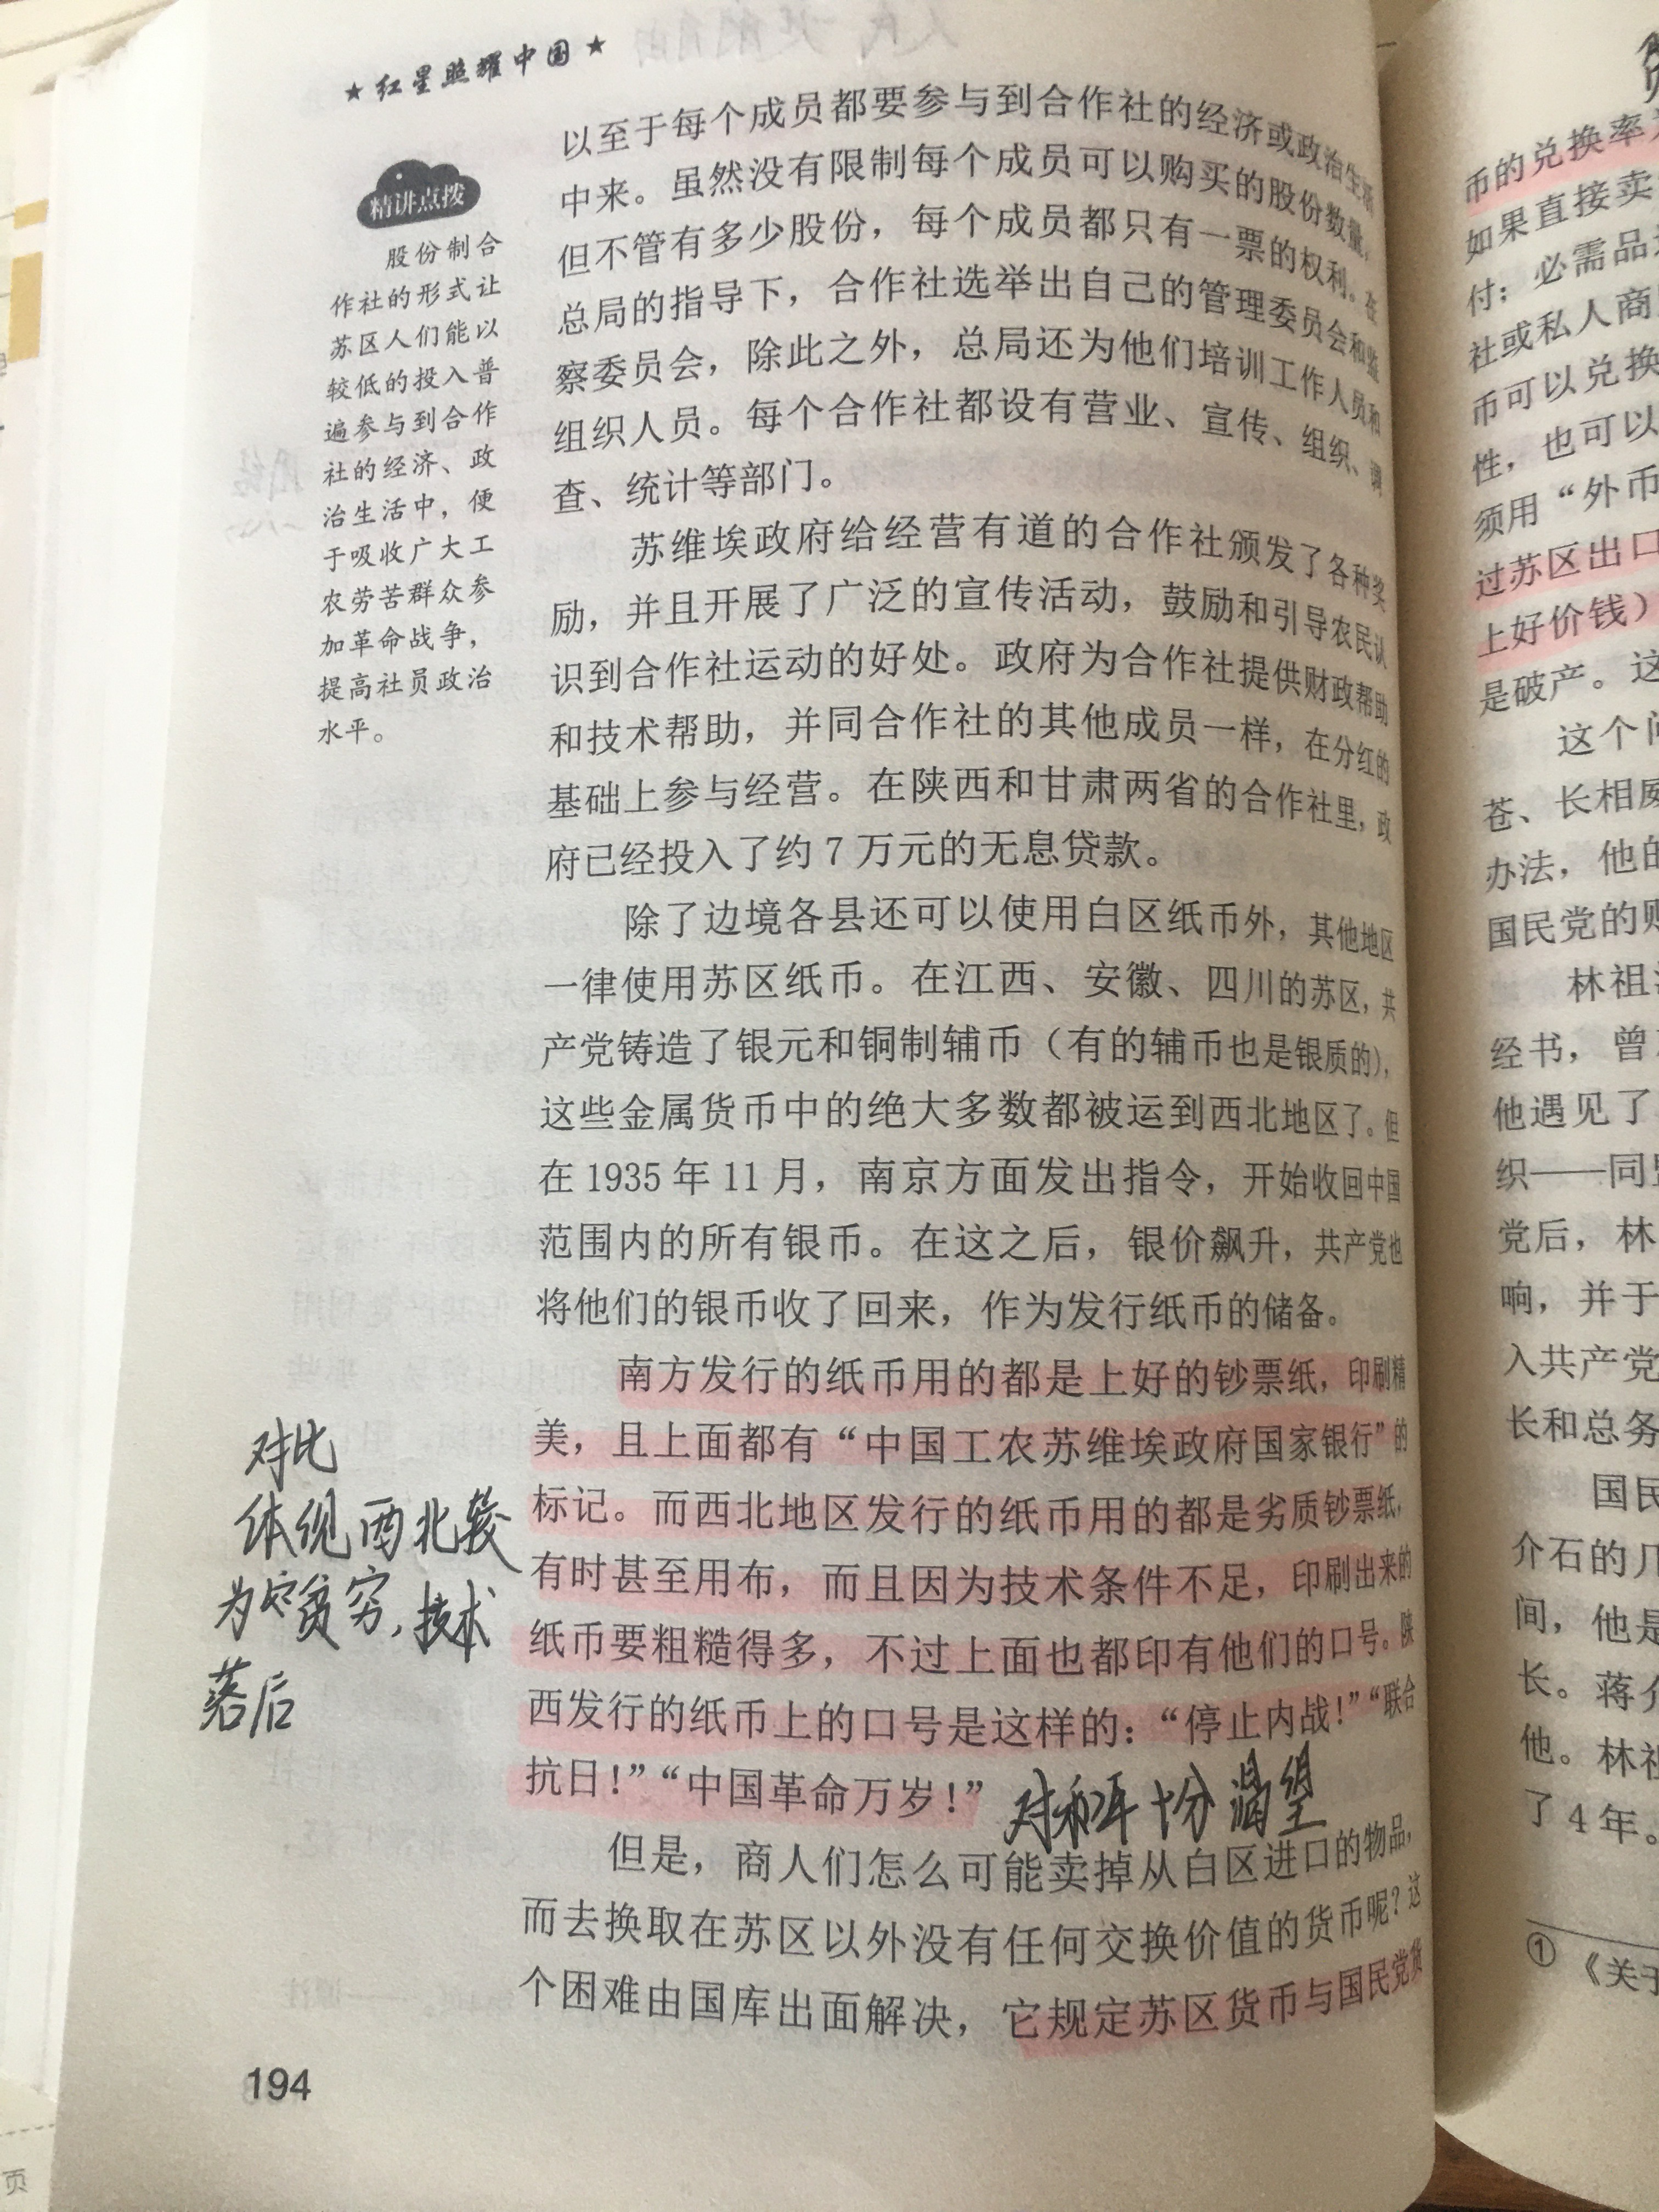 ★红星照耀中国★
以至于每个成员都要参与到合作社的经济或政治生活
中来。虽然没有限制每个成员可以购买的股份数量，
但不管有多少股份，每个成员都只有一票的权利。在
总局的指导下，合作社选举出自己的管理委员会和监
察委员会，除此之外，总局还为他们培训工作人员和
组织人员。每个合作社都设有营业、宣传、组织、调
查、统计等部门。
苏维埃政府给经营有道的合作社颁发了各种奖
励，并且开展了广泛的宣传活动，鼓励和引导农民认
识到合作社运动的好处。政府为合作社提供财政帮助
和技术帮助，并同合作社的其他成员一样，在分红的
基础上参与经营。在陕西和甘肃两省的合作社里，政
府已经投入了约7万元的无息贷款。
除了边境各县还可以使用白区纸币外，其他地区
一律使用苏区纸币。在江西、安徽、四川的苏区，共
产党铸造了银元和铜制辅币（有的辅币也是银质的），
这些金属货币中的绝大多数都被运到西北地区了。但
在1935年11月，南京方面发出指令，开始收回中国
范围内的所有银币。在这之后，银价飙升，共产党也
将他们的银币收了回来，作为发行纸币的储备。
南方发行的纸币用的都是上好的钞票纸，印刷精
美，且上面都有“中国工农苏维埃政府国家银行”的
标记。而西北地区发行的纸币用的都是劣质钞票纸，
有时甚至用布，而且因为技术条件不足，印刷出来的
纸币要粗糙得多，不过上面也都印有他们的口号。陕
西发行的纸币上的口号是这样的：“停止内战！”“联合
抗日！”“中国革命万岁！”
对和平十分渴望
但是，商人们怎么可能卖掉从白区进口的物品，
而去换取在苏区以外没有任何交换价值的货币呢？这
个困难由国库出面解决，它规定苏区货币与国民党货
精讲点拨
股份制合
作社的形式让
苏区人们能以
较低的投入普
遍参与到合作
社的经济、政
治生活中，便
于吸收广大工
农劳苦群众参
加革命战争，
提高社员政治
水平。
对比
体现西北较
为贫穷，技术
落后
194
页
币的兑换率
如果直接卖
付；必需品
社或私人商
币可以兑换
性，也可以
须用“外币
过苏区出口
上好价钱）
是破产。这
这个问
苍、长相威
办法，他的
国民党的财
林祖
经书，曾
他遇见了
织——同盟
党后，林
响，并于
入共产党
长和总务
国民
介石的几
间，他是
长。蒋介
他。林祖
了4年。
①《关于